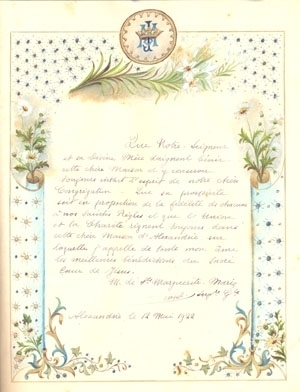 Que Notre Seigneur
et sa bonne Mère daignent bénir
cette chère Maison et y conserver
toujours intact l'esprit de notre chère
Congrégation. Que sa prospérité
soit en proportion de la fidélité de chacune
à nos Saintes Règles et que l'Union
et la Charité règnent toujours dans
cette chère Maison d'Alexandrie sur
laquelle j'appelle de toute mon âme
les meilleures bénédictions du Sacré
Cœur de Jésus.
M. de Ste Marguerite Marie
Alexandrie le 12 Mai 1922